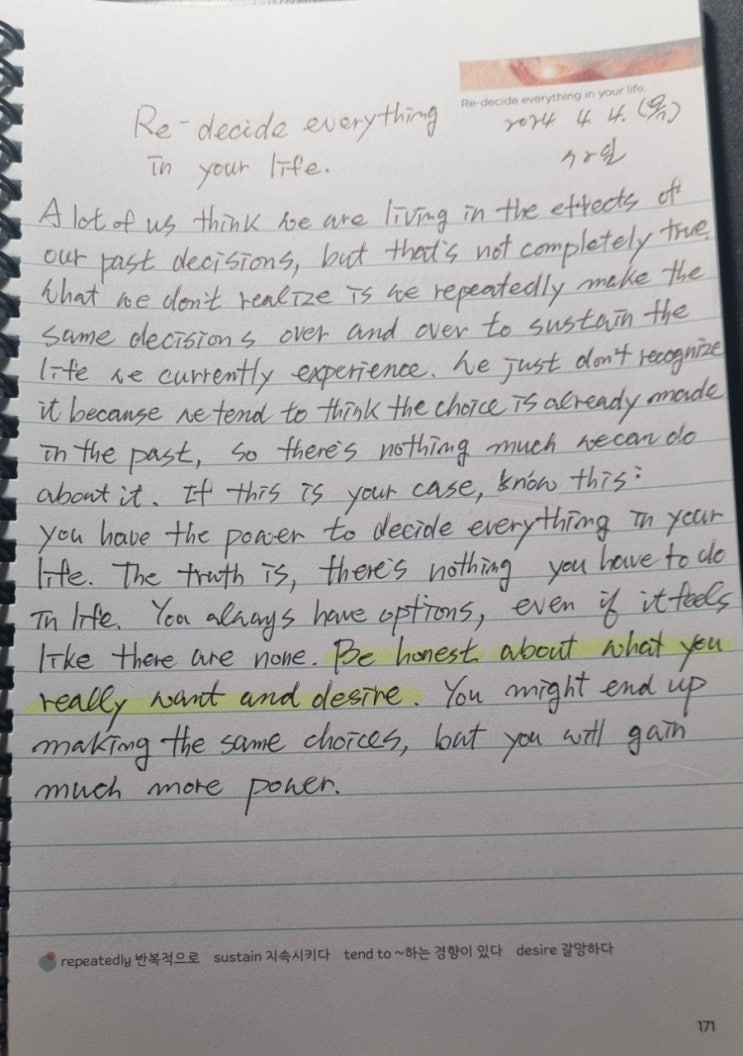 Re-decide everything in your life.
Re-decide everything
in your life.
2024. 4. 4. (목)
A lot of us think we are living in the effects of
our past decisions, but that's not completely true.
What we don't realize is we repeatedly make the
same decisions over and over to sustain the
life we currently experience. We just don't recognize
it because we tend to think the choice is already made
in the past, so there's nothing much we can do
about it. If this is your case, know this:
you have the power to decide everything in your
life. The truth is, there's nothing you have to do
in life. You always have options, even if it feels
like there are none. Be honest about what you
really want and desire. You might end up
making the same choices, but you will gain
much more power.
repeatedly 반복적으로 sustain 지속시키다 tend to ~하는 경향이 있다 desire 갈망하다
171